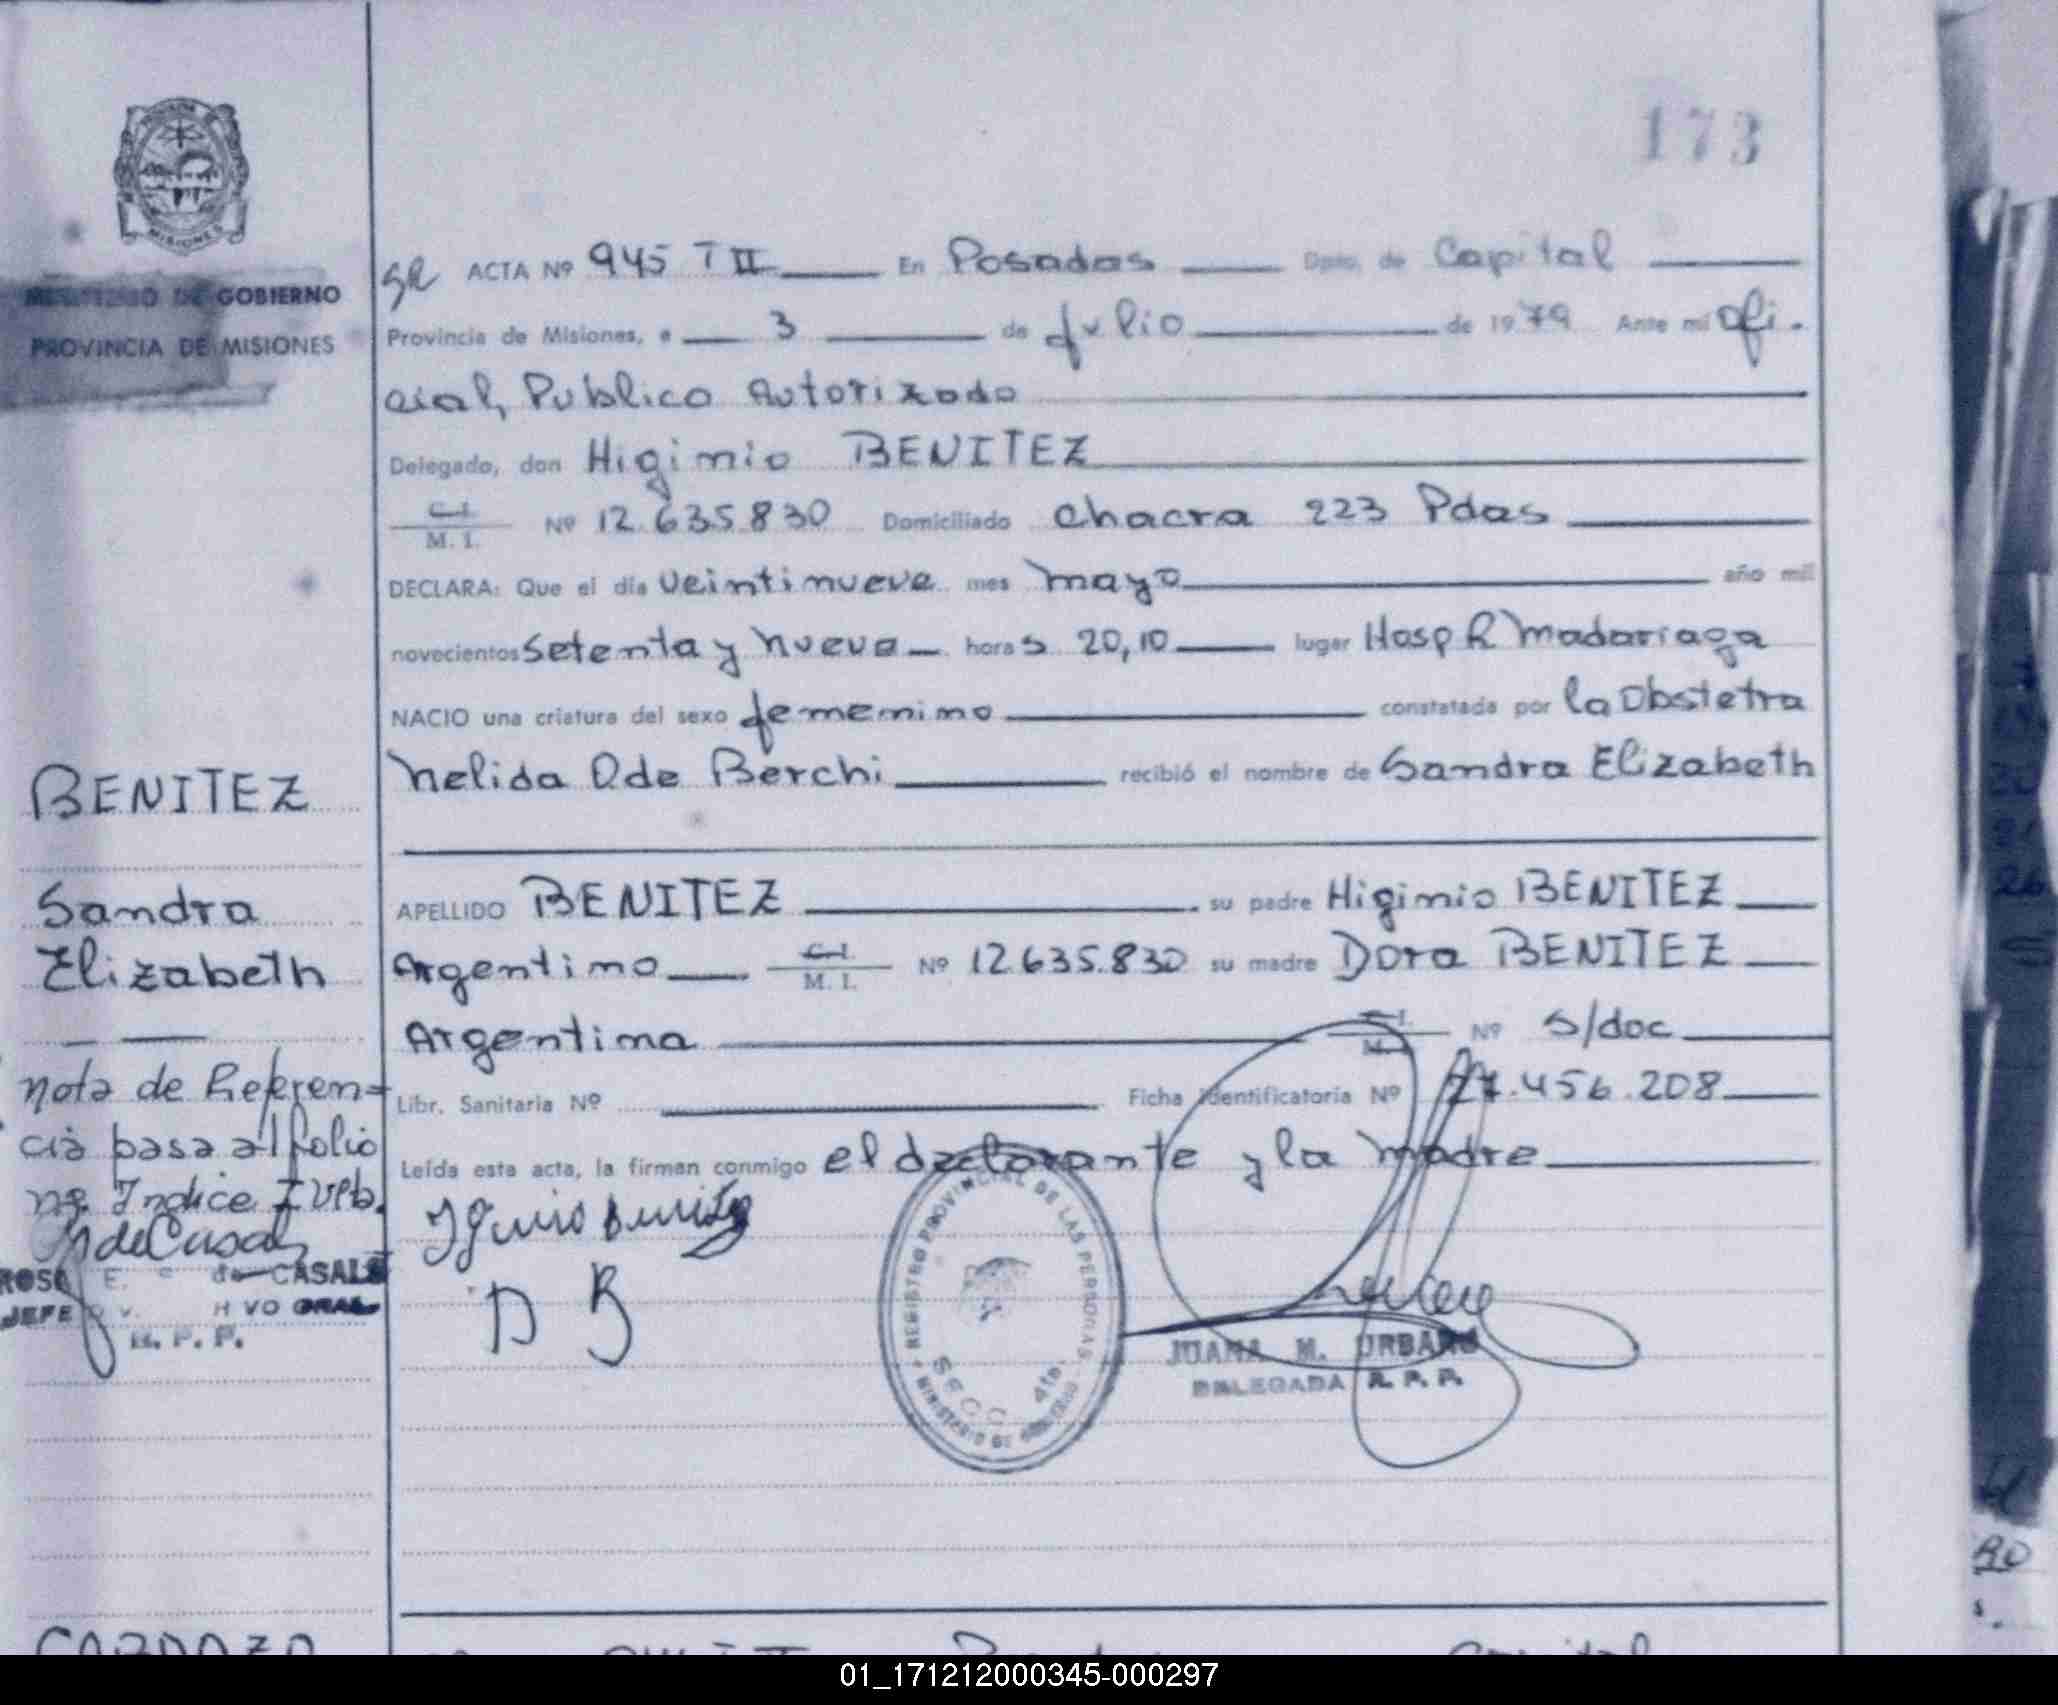 173
MISIONES
MINISTERIO DE GOBIERNO
PROVINCIA DE MISIONES
ACTA Nº 945 T II En Posadas Dpto. de Capital
Provincia de Misiones, a 3 de Julio de 1979 Ante mi Ofi-
cial, Publico Autorizado
Delegado, don Higinio BENITEZ
C.I. M. I. Nº 12.635.830 Domiciliado Chacra 223 Pdas
DECLARA: Que el día veintinueve mes mayo año mil
novecientos setenta y nueve horas 20,10 lugar Hosp R Madariaga
NACIO una criatura del sexo femenino constatada por la Obstetra
Nelida O de Berchi recibió el nombre de Sandra Elizabeth
APELLIDO BENITEZ su padre Higinio BENITEZ
Argentino C.I. M. I. Nº 12.635.830 su madre Dora BENITEZ
Argentina C.I. M.I. Nº s/doc
Libr. Sanitaria Nº Ficha Identificatoria Nº 27.456.208
Leída esta acta, la firman conmigo el declarante y la madre
BENITEZ
Sandra
Elizabeth
nota de Referen=
cia pasa al folio
Indice
de Casals
ROSA E. de CASALS
JEFE
R. P. P.
D B
REGISTRO PROVINCIAL DE LAS PERSONAS
MINISTERIO DE GOBIERNO
SECC 4ta
JUANA M. URBANO
DELEGADA R. P. P.
01_171212000345-000297